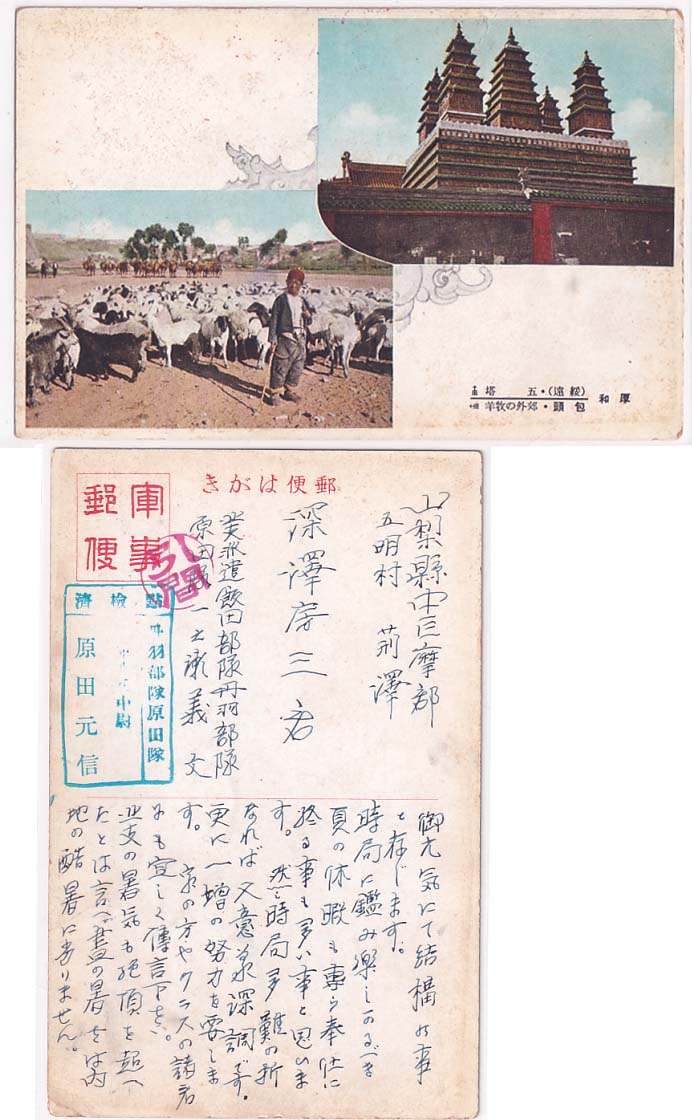 厚和
(綏遠)・五塔
包頭・郊外の牧羊
郵便はがき
軍事
郵便
引間
點檢濟
丹羽部隊原田隊
中尉
原田元信
山梨縣中巨摩郡
五明村 荊澤
深澤房三君
派遣飯田部隊丹羽部隊
原田隊 義文
御元気にて結構の事
と存じます。
時局に鑑み楽しかるべき
夏の休暇も専ら奉仕に
終る事も多い事と思いま
す。然し時局多難の折
なれば又意義深調です。
更に一増の努力を要しま
す。家の方やクラスの諸君
にも宜しく傳言下さい。
北支の暑気も絶頂を超へ
たとは言へ晝の暑さは内
地の酷暑に劣りません。